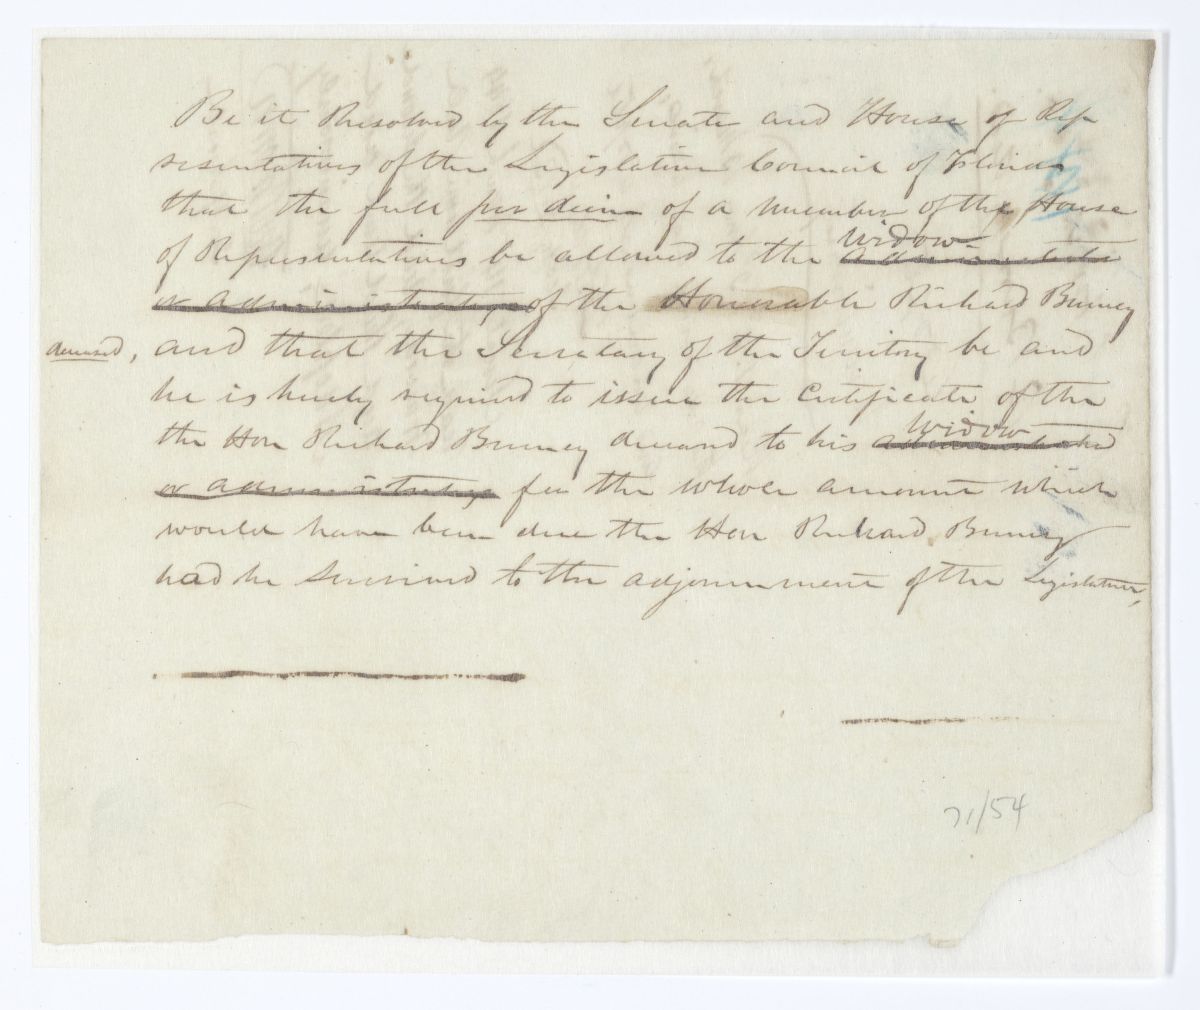 Be it Resolved by the Senate and House of Rep
resentatives of the Legislative Council of Florida
that the full per diem of a member of the House
of Representatives be allowed to the widow
or administratrix of the Honorable Richard Burney
deceased, and that the Secretary of the Territory be and
he is hereby required to issue the Certificate of the
the Hon Richard Burney deceased to his widow
or administratrix for the whole amount which
would have been due the Hon Richard Burney
had he survived to the adjournment of the Legislature,
71/54